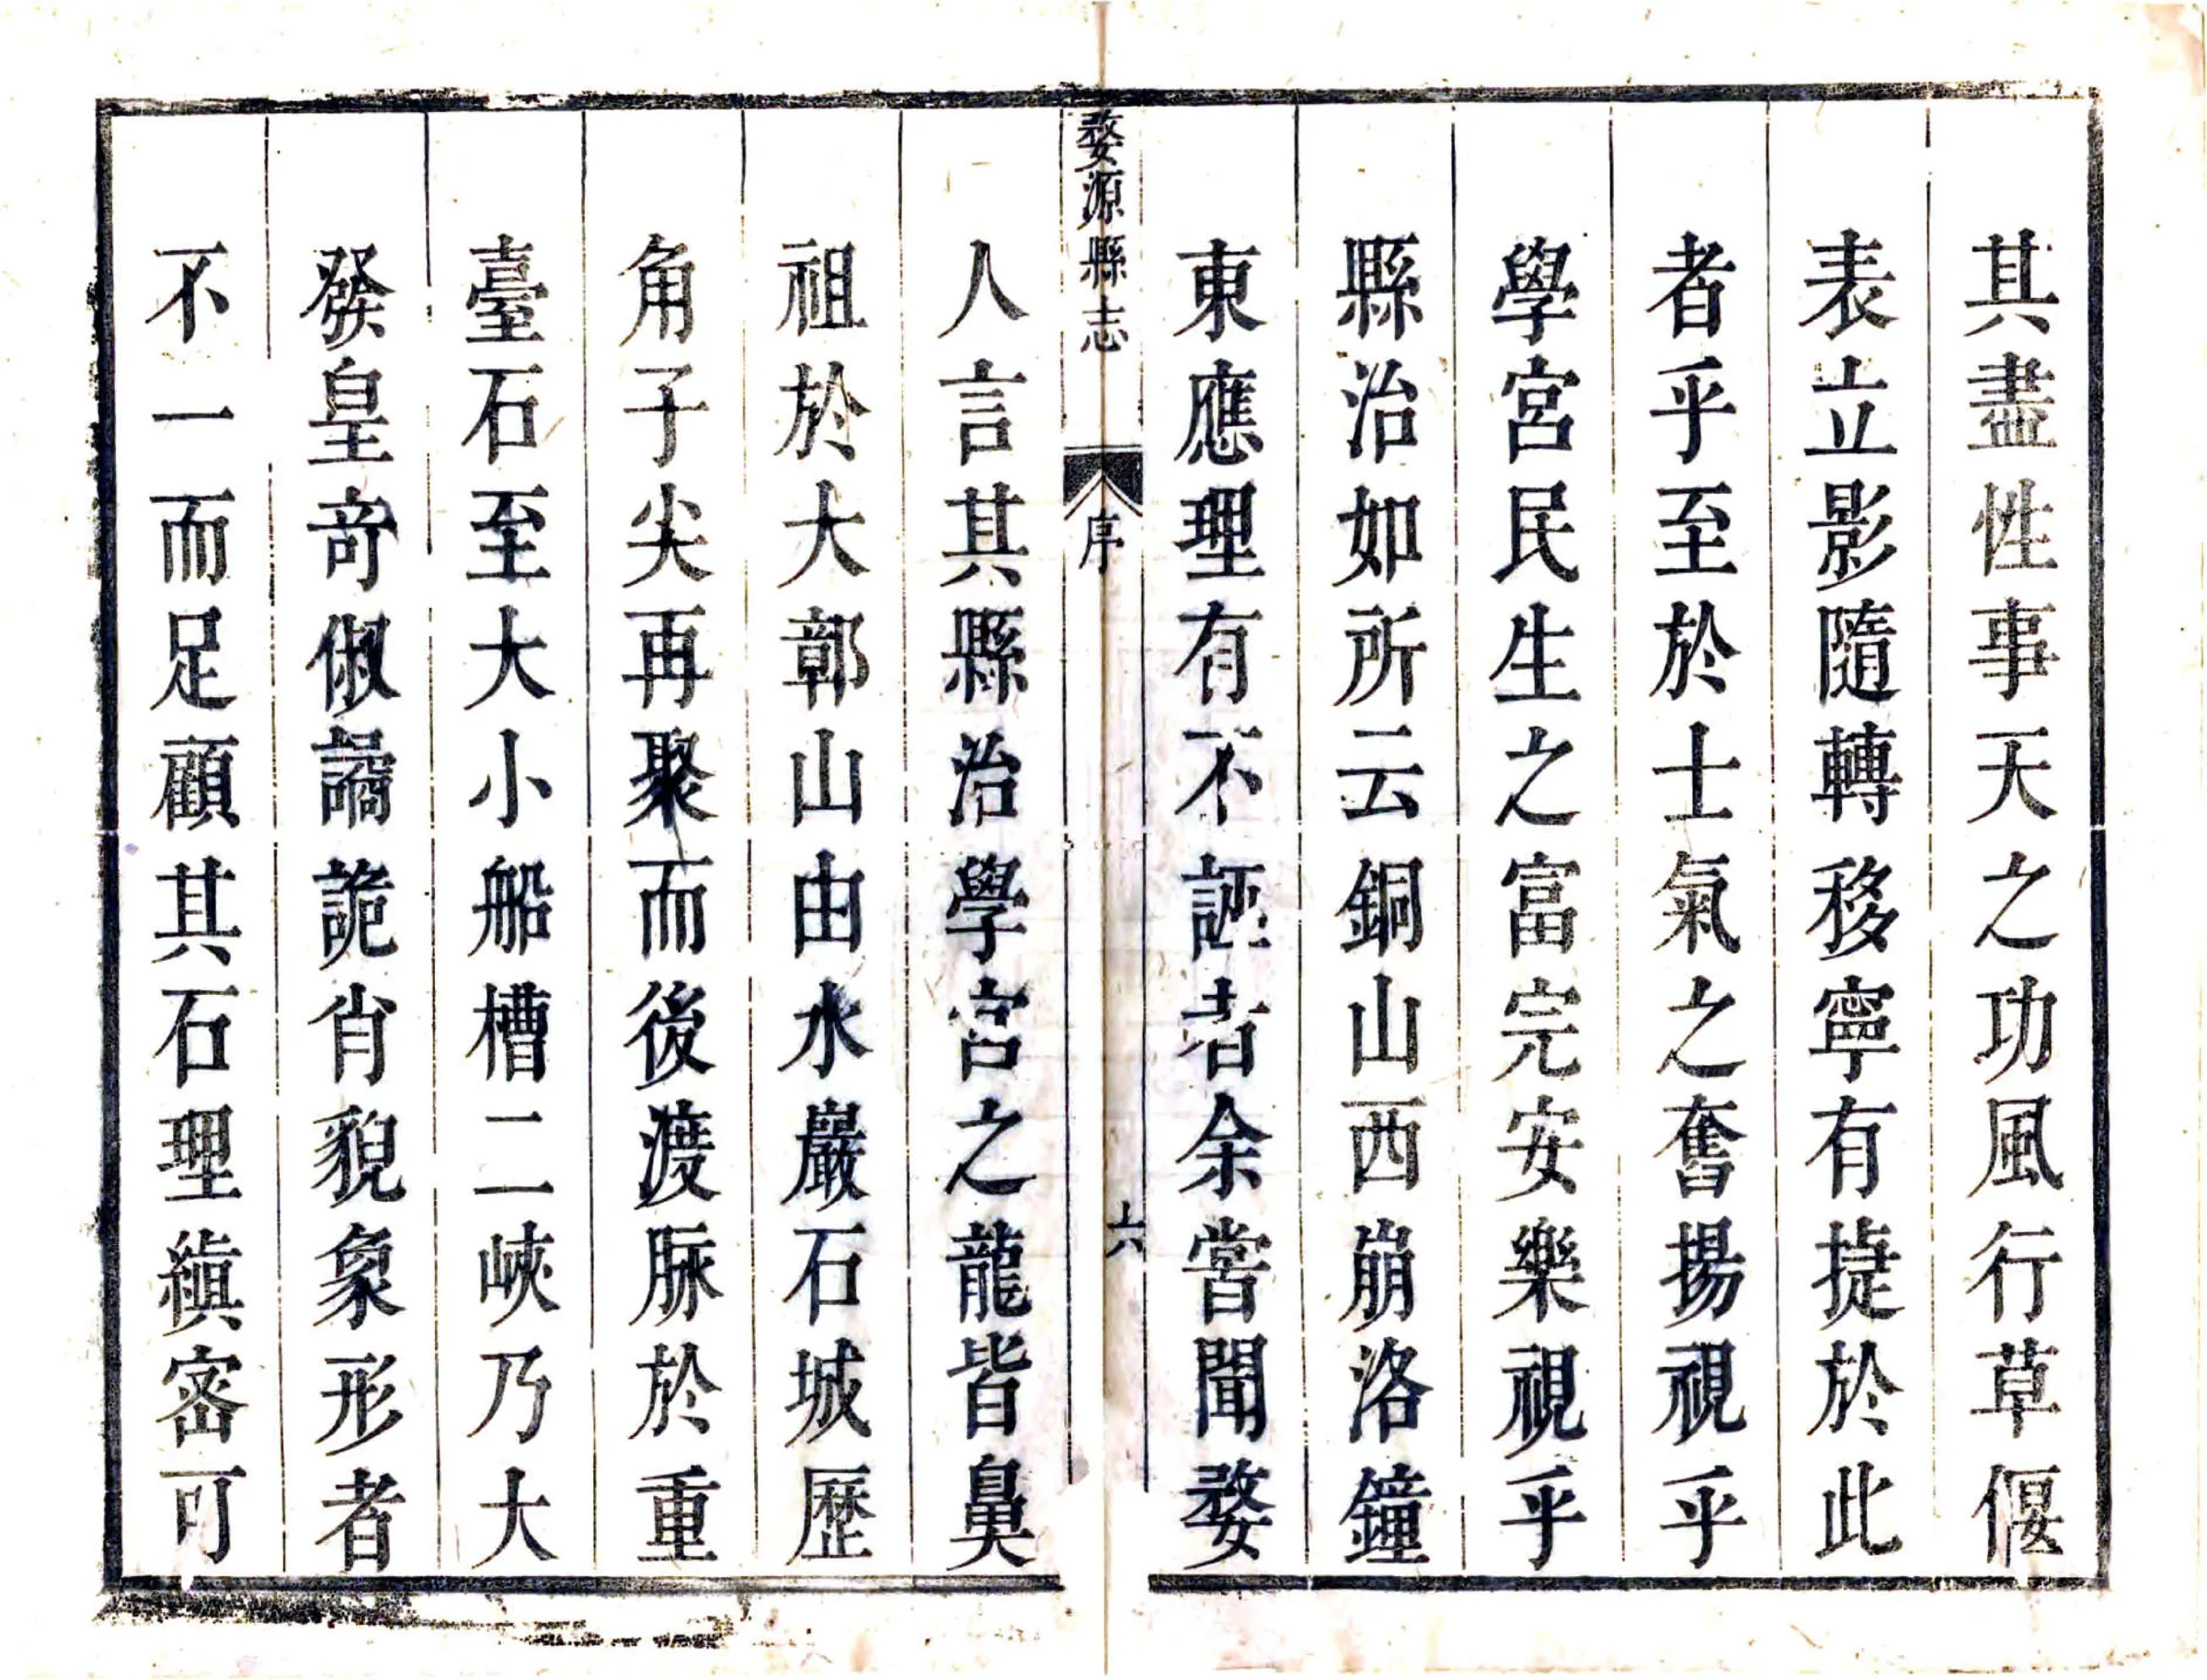 其盡性事天之功風行草偃
表立影隨轉移寧有捷於此
者乎至於士氣之奮揚視乎
學宮民生之富完安樂視乎
縣治如所云銅山西崩洛鐘
東應理有不誣者余嘗聞婺
婺源縣志
序
六
人言其縣治學宮之龍皆鼻
祖於大鄣山由水巖石城歷
角子尖再聚而後渡脉於重
臺石至大小船槽二峽乃大
發皇奇俶譎詭肖貌象形者
不一而足顧其石理縝密可